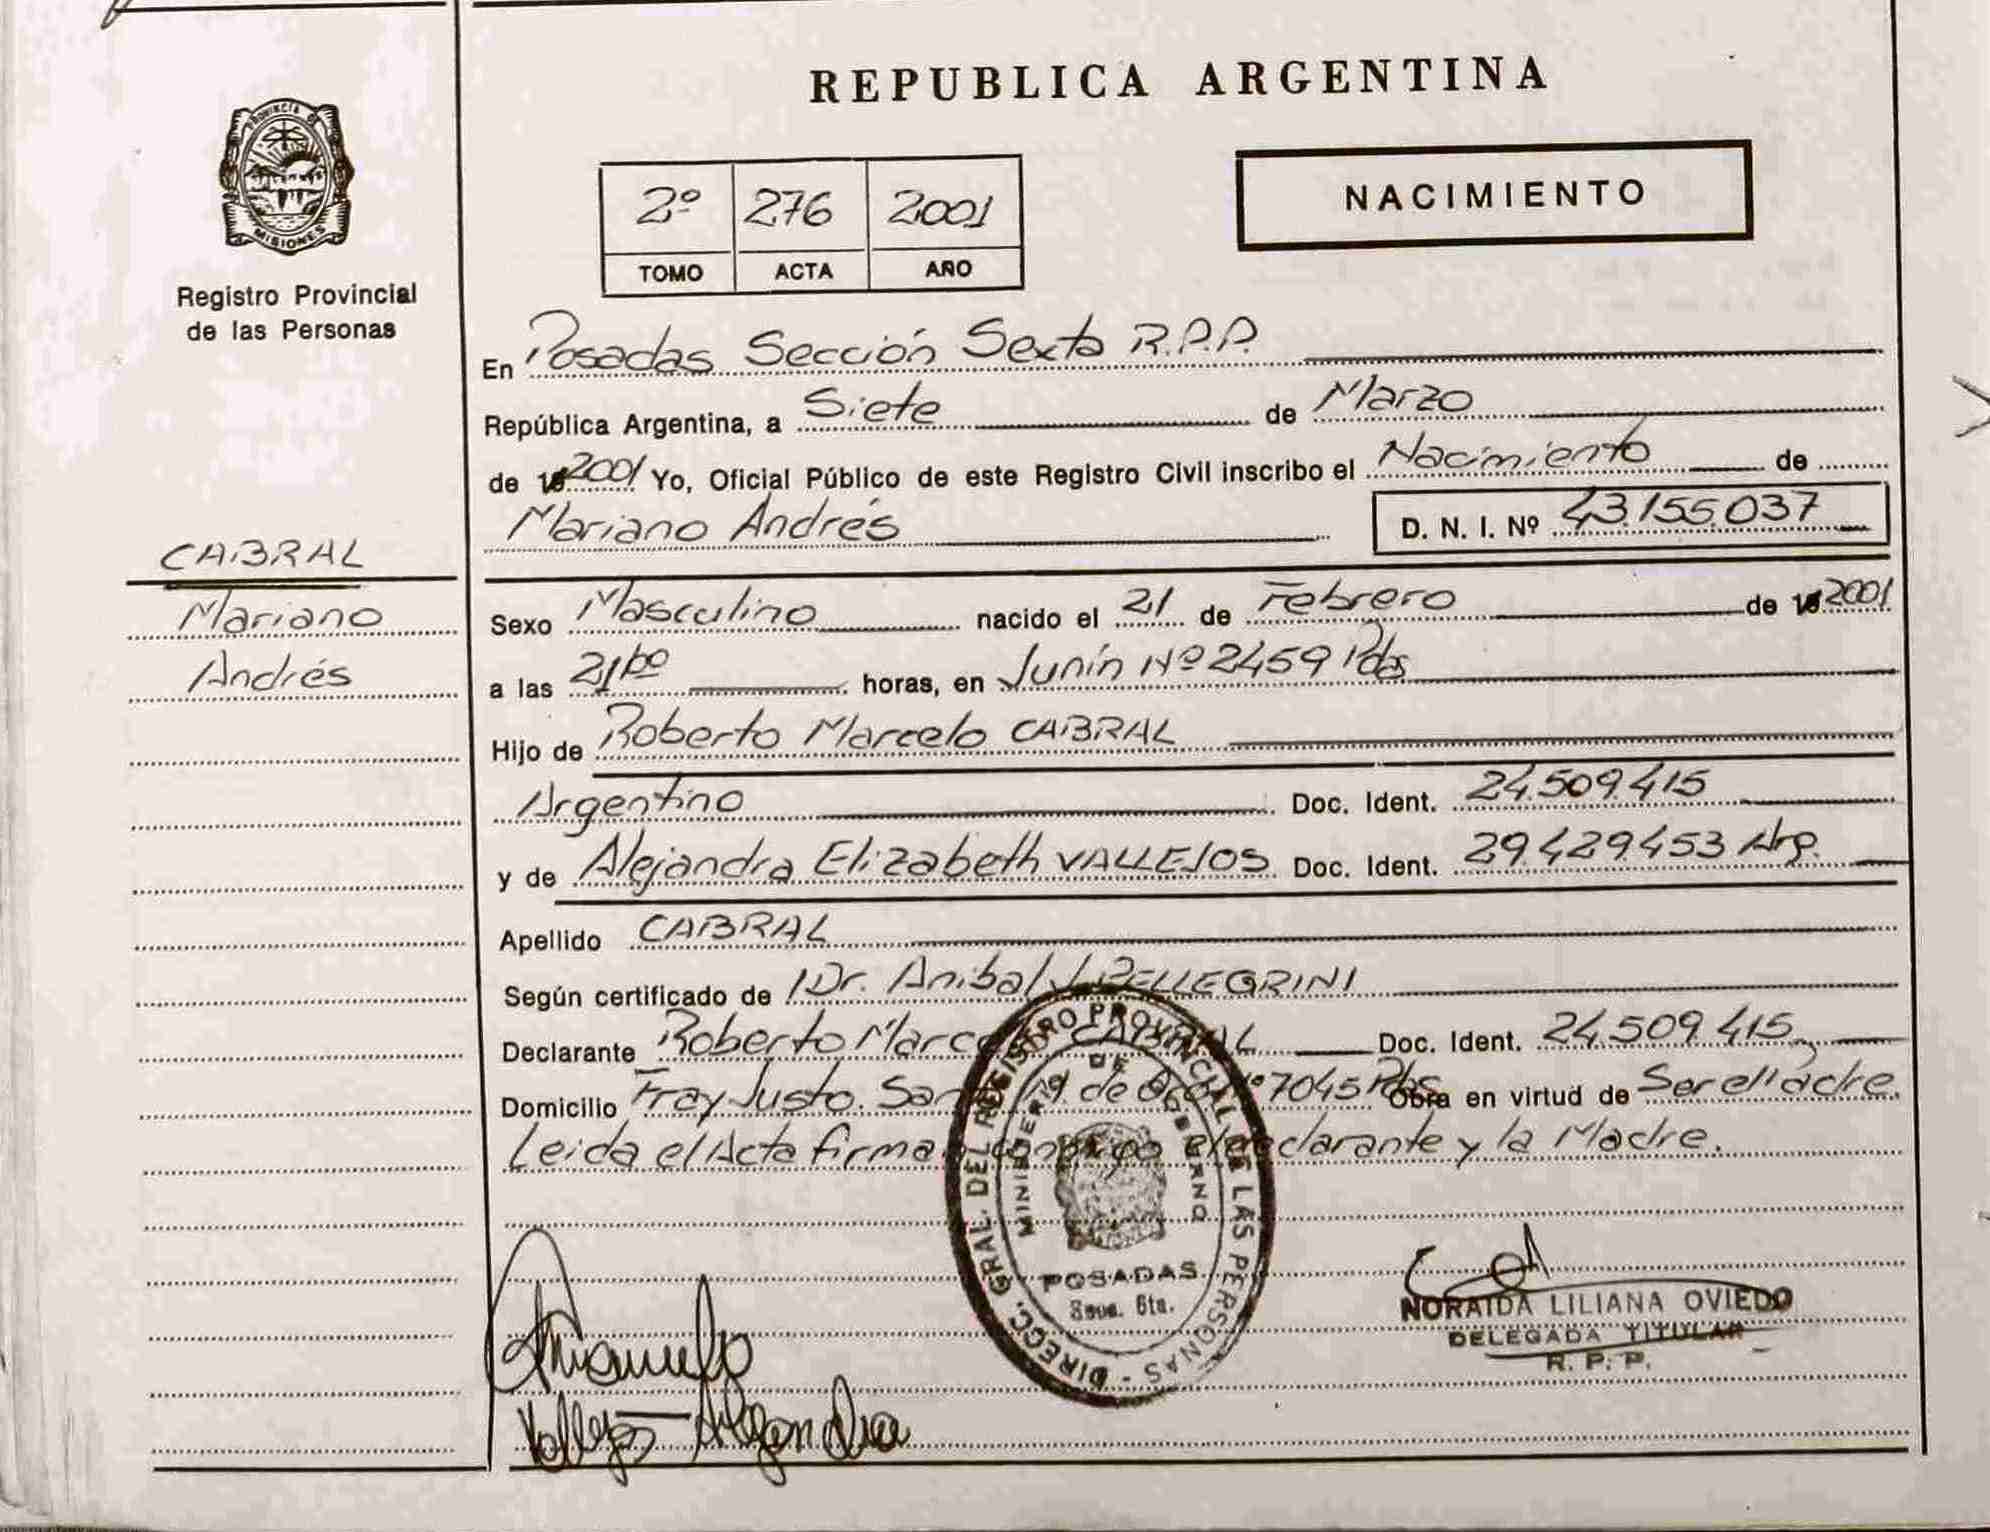 REPUBLICA ARGENTINA
PROVINCIA DE MISIONES
Registro Provincial
de las Personas
NACIMIENTO
2º 276 2001
TOMO ACTA AÑO
En Posadas Sección Sexta R.P.P.
República Argentina, a Siete de Marzo
de 2001 Yo, Oficial Público de este Registro Civil inscribo el Nacimiento de
Mariano Andrés D. N. I. Nº 43.155.037
CABRAL
Mariano
Andrés
Sexo Masculino nacido el 21 de Febrero de 2001
a las 21 horas, en Junín Nº 2459 Pdas
Hijo de Roberto Marcelo CABRAL
Argentino Doc. Ident. 24.509.415
y de Alejandra Elizabeth VALLEJOS Doc. Ident. 29.429.453 Arg.
Apellido CABRAL
Según certificado de Dr. Anibal J. PELLEGRINI
Declarante Roberto Marcelo CABRAL Doc. Ident. 24.509.415
Domicilio Fray Justo. Santa de Oro Nº 7045 Pdas Obra en virtud de Ser el Padre.
Leida el Acta firman conmigo el declarante y la Madre.
DIRECC. GRAL. DEL REGISTRO PROVINCIAL DE LAS PERSONAS -
MINISTERIO DE GOBIERNO
POSADAS
Secc. 6ta.
NORAIDA LILIANA OVIEDO
DELEGADA TITULAR
R. P. P.
Vallejos Alejandra